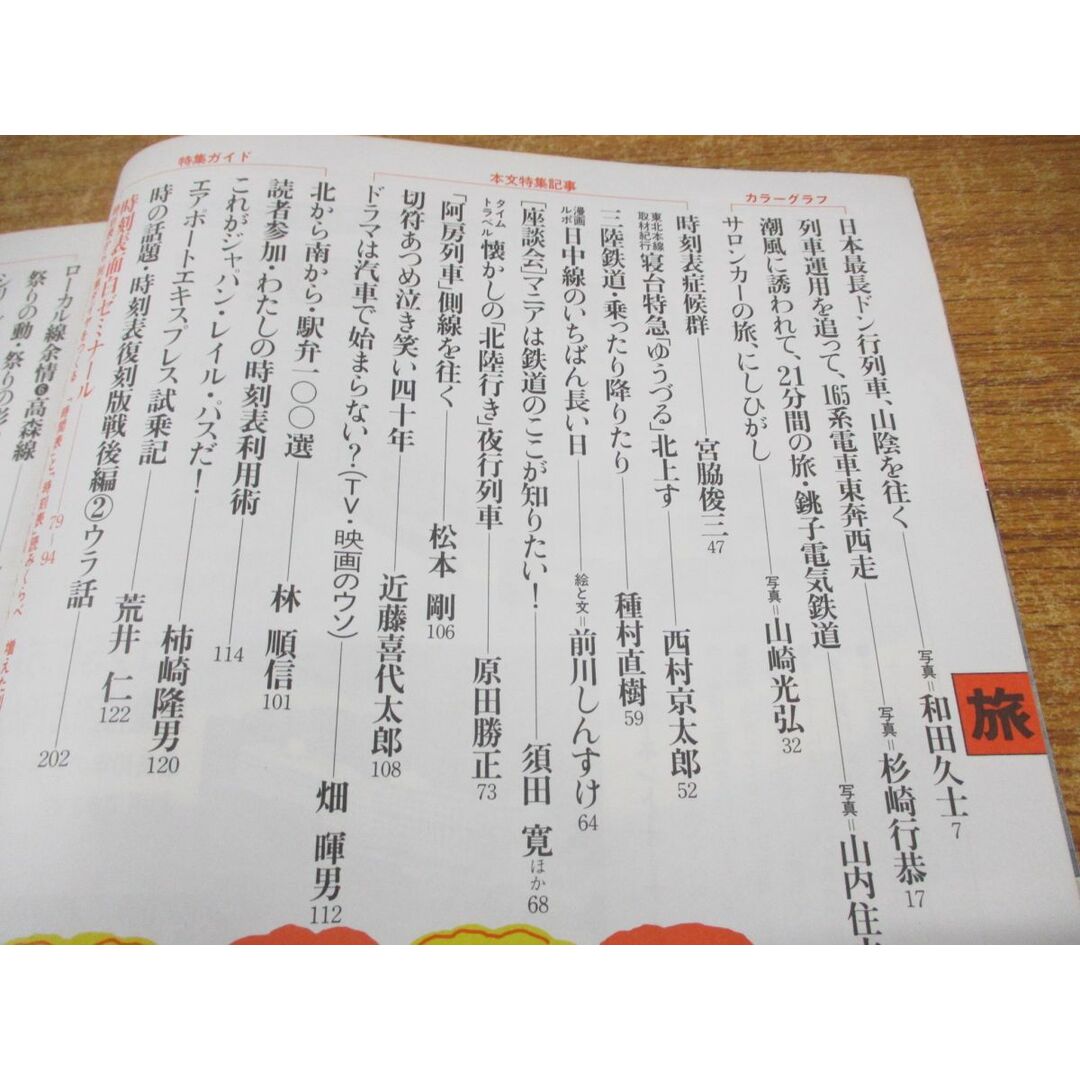 旅
カラーグラフ
日本最長ドン行列車、山陰を往く 写真＝和田久士 7
列車運用を追って、165系電車東奔西走 写真＝杉崎行恭 17
潮風に誘われて、21分間の旅・銚子電気鉄道 写真＝山内住
サロンカーの旅、にしひがし 写真＝山崎光弘 32
本文特集記事
時刻表症候群 宮脇俊三 47
東北本線取材紀行 寝台特急「ゆうづる」北上す 西村京太郎 52
三陸鉄道・乗ったり降りたり 種村直樹 59
漫画ルポ 日中線のいちばん長い日 絵と文＝前川しんすけ 64
［座談会］マニアは鉄道のここが知りたい！ 須田 寛ほか 68
タイムトラベル 懐かしの「北陸行き」夜行列車 原田勝正 73
「阿房列車」側線を往く 松本 剛 106
切符あつめ泣き笑い四十年 近藤喜代太郎 108
ドラマは汽車で始まらない？（TV・映画のウソ） 畑 暉男 112
特集ガイド
北から南から・駅弁一〇〇選 林 順信 101
読者参加・わたしの時刻表利用術 114
これがジャパン・レイル・パスだ！ 柿崎隆男 120
エアポートエキスプレス試乗記 荒井 仁 122
時の話題・時刻表復刻版戦後編②ウラ話
時刻表面白ゼミナール 79—94
ローカル線余情 高森線 202
祭りの動・祭りの影